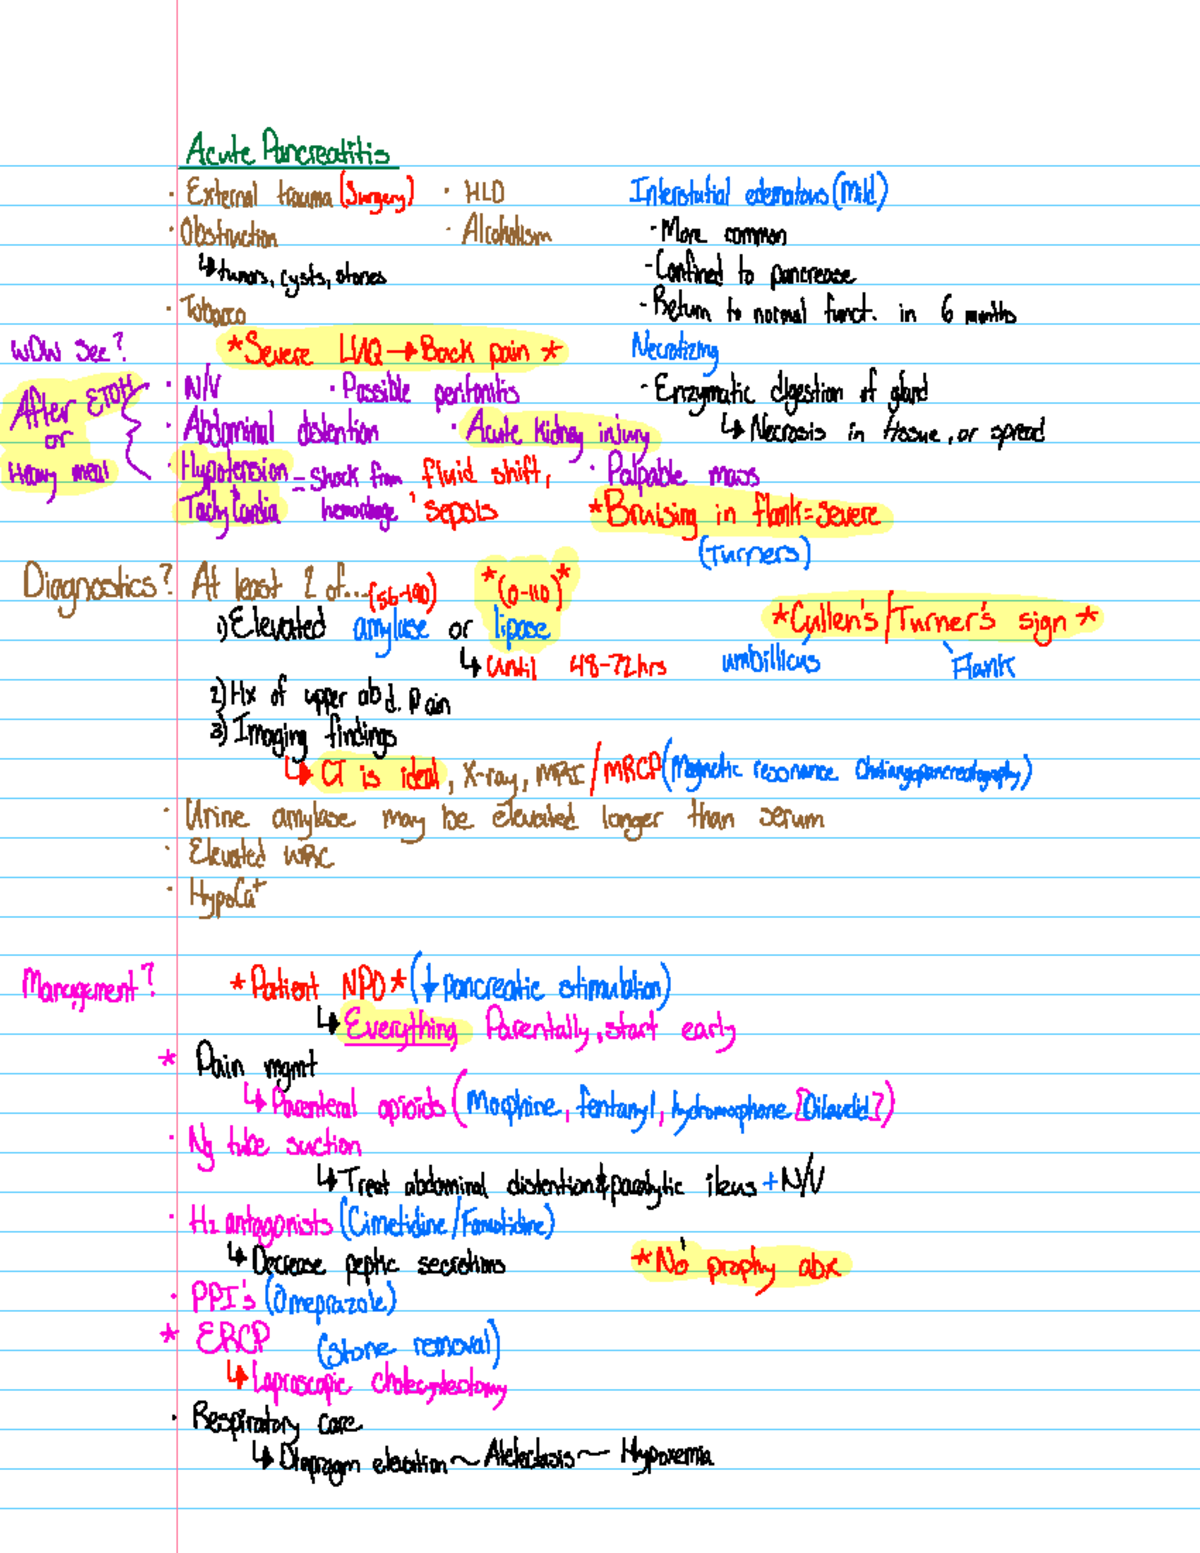 Acute Pancreatitis
· External trauma (Surgery) · HLD
· Obstruction · Alcoholism
↳ tumors, cysts, stones
· Tobacco
Interstitial edematous (Mild)
- More common
- Confined to pancrease
- Return to normal funct. in 6 months
Necrotizing
- Enzymatic digestion of gland
↳ Necrosis in tissue, or spread
WDW see? *Severe LUQ → Back pain *
After ETOH or Heavy meal
· N/V · Possible peritonitis
· Abdominal distention · Acute kidney injury
· Hypotension = Shock from fluid shift, · Palpable mass
Tachycardia hemorrhage, sepsis *Bruising in flank = severe
(Turners)
Diagnostics? At least 2 of... (56-190) *(0-110)*
1) Elevated amylase or lipase *Cullen's/Turner's sign *
↳ Until 48-72hrs umbillicus Flank
2) Hx of upper abd. Pain
3) Imaging findings
↳ CT is ideal, X-ray, MRI / MRCP (Magnetic resonance Cholangopancreatography)
· Urine amylase may be elevated longer than serum
· Elevated WBC
· HypoCa+
Management? *Patient NPO* (↓ pancreatic stimulation)
↳ Everything Parentally, start early
* Pain mgmt
↳ Parenteral opioids (Morphine, fentanyl, hydromorphone [Dilaudid])
· Ng tube suction
↳ Treat abdominal distention & paralytic ileus + N/V
· H2 antagonists (Cimetidine/Famotidine)
↳ Decrease peptic secretions *No prophy abx
· PPI's (Omeprazole)
* ERCP (stone removal)
↳ Laproscopic cholecystectomy
· Respiratory care
↳ Diaphragm elevation ~ Atelectasis ~ Hypoxemia